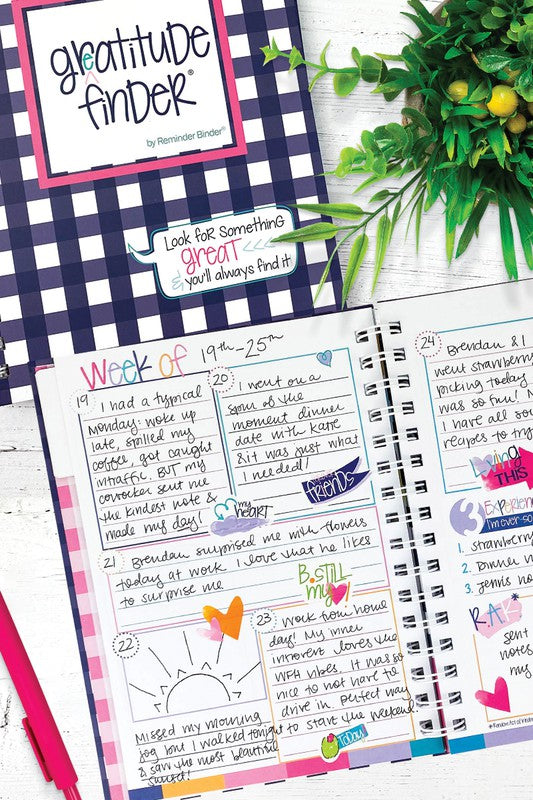 greatitude
finder®
by Reminder Binder®
Look for something
great
& you'll always find it
Week of 19th-25th
19
I had a typical
Monday: woke up
late, spilled my
coffee, got caught
in traffic. BUT my
coworker sent me
the kindest note &
made my day!
my
heart
20
I went on a
spur of the
moment dinner
date with Katie
& it was just what
I needed!
friends
21
Brendan surprised me with flowers
today at work. I love that he likes
to surprise me
B.Still
my
22
Missed my morning
jog, but I walked tonight
& saw the most beautiful
sunset!
23
Work from home
day! My inner
introvert loves the
WFH vibes. It was so
nice to not have to
drive in. Perfect way
to start the weekend!
Today
24
Brendan & I
went strawberry
picking today
was so fun! 
I have all so
recipes to try
loving
THIS
3 Experien
I'm ever-so
1. strawberry
2. 
3. 
RAK*
sent
notes
my